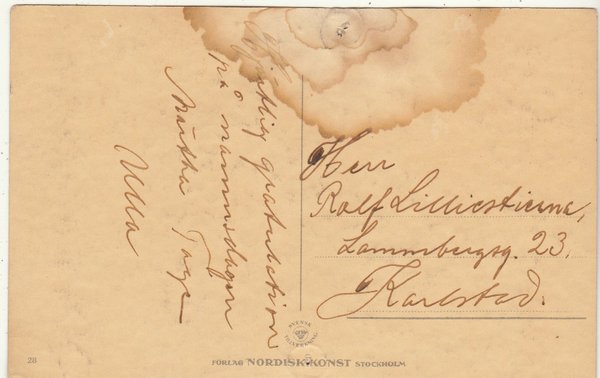 Hjärtlig gratulation
på namnsdagen
Märtha Tage
Ulla
Herr
Rolf Lilliestierna,
Lammbergsg. 23.
Karlstad.
SVENSK TILLVERKNING
28
FÖRLAG NORDISK KONST STOCKHOLM